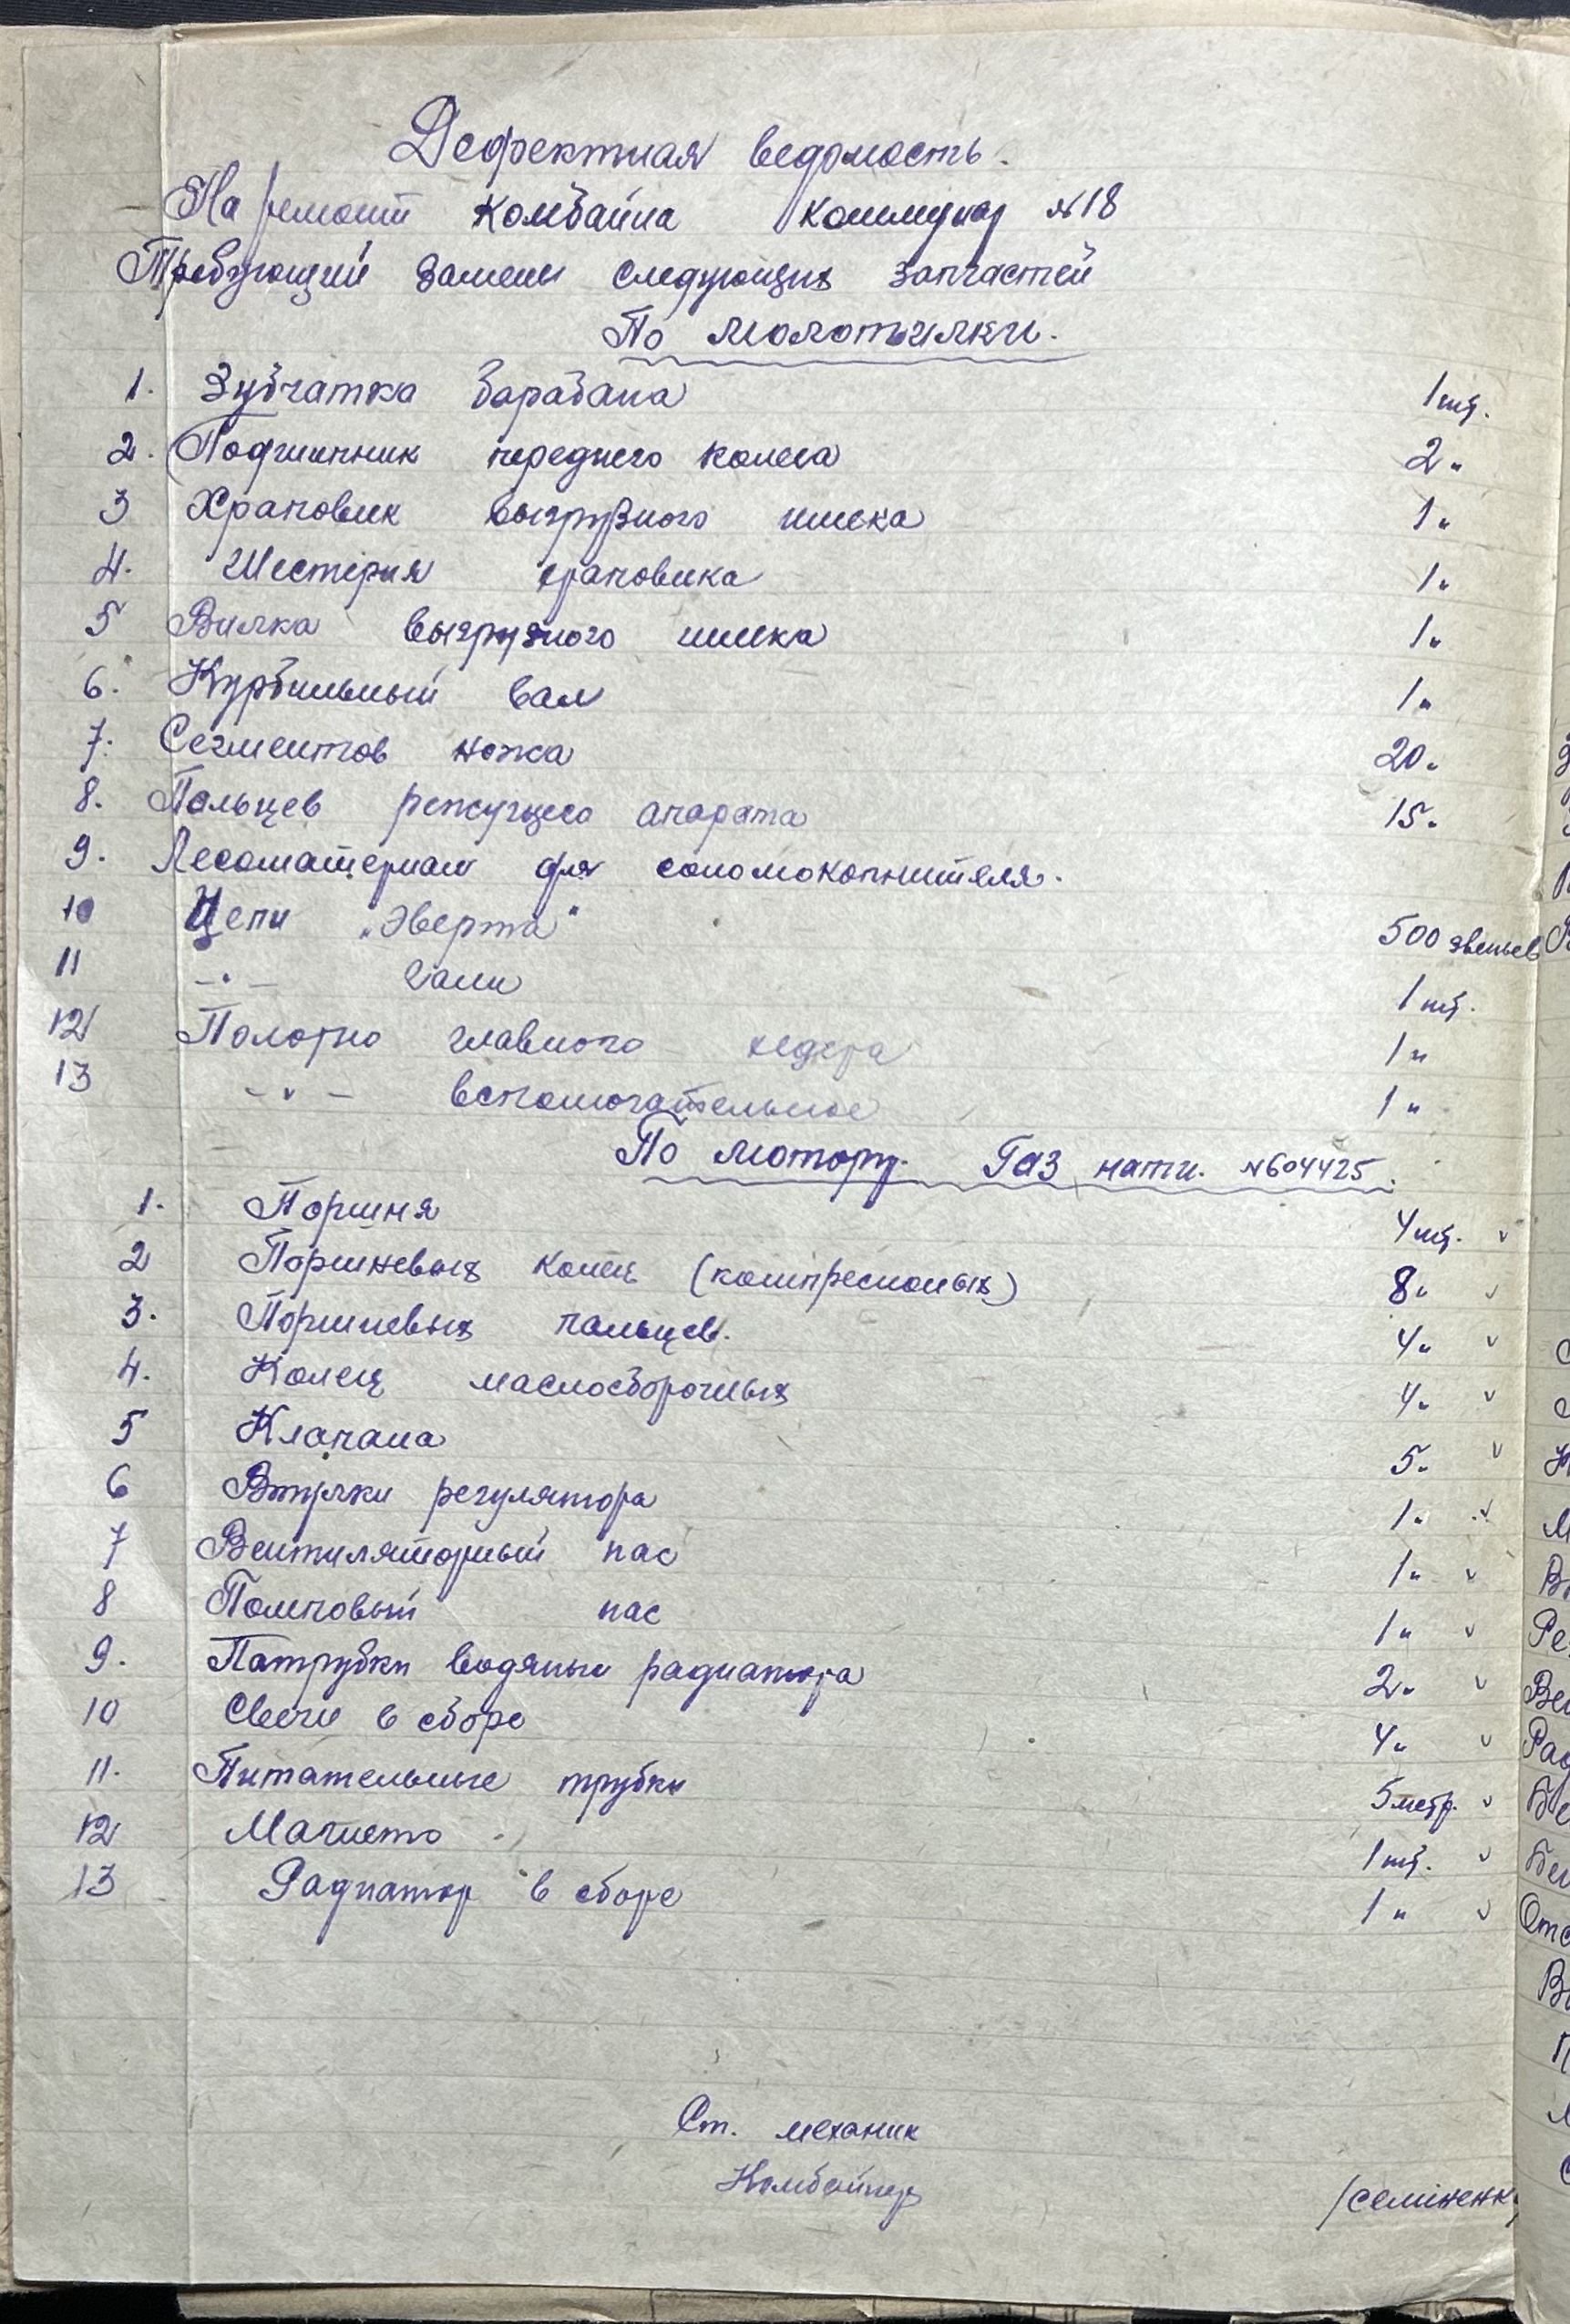 Дефектная ведомость.
На ремонт Комбайна Коммунар №18
Требующий замены следующих запчастей
По молотилки.
1. Зубчатка барабана 1 шт.
2. Подшипник переднего колеса 2 "
3 Храповик выгрузного шнека 1 "
4. Шестерня храповика 1 "
5 Вилка выгрузного шнека 1 "
6. Курбильный вал 1 "
7. Сегментов ножа 20 "
8. Пальцев режущего апарата 15 "
9. Лесоматериал для соломокопнителя.
10 Цепи „Эверта" 500 звеньев
11 -"- Гали 1 шт.
12 Полотно главного хедера 1 "
13 -"- вспомогательное 1 "
По мотору. Газ нати. №604425.
1. Поршня 4 шт. v
2 Поршневых колец (компресионых) 8 " v
3. Поршневых пальцев. 4 " v
4. Колец маслосборочных 4 " v
5 Клапана 5 " v
6 Втулки регулятора 1 " v
7 Вентиляторный пас 1 " v
8 Помповый пас 1 " v
9. Патрубки водяные радиатора 2 " v
10 Свечи в сборе 4 " v
11. Питательные трубки 5 метр. v
12 Магнето 1 шт. v
13 Радиатор в сборе 1 " v
Ст. механик
Комбайнер /Семіненк